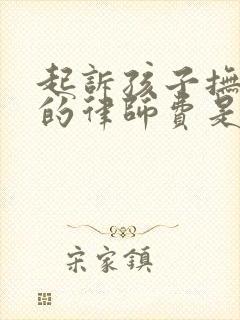 起訴孩子撫
的律師費是
宋家鎮